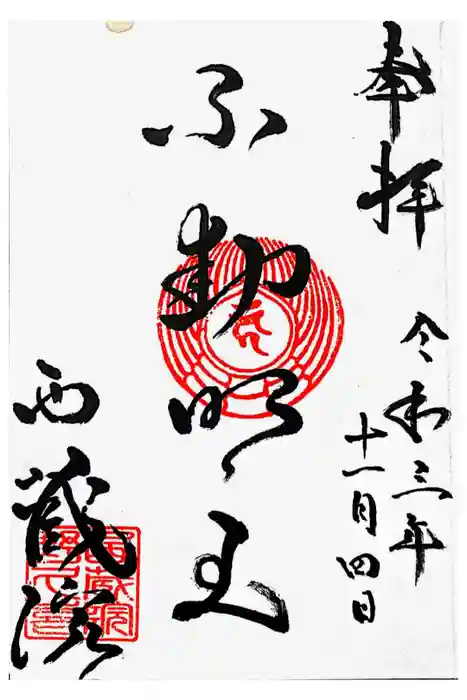 奉拝
令和三年
十一月四日
不動明王
西蔵院